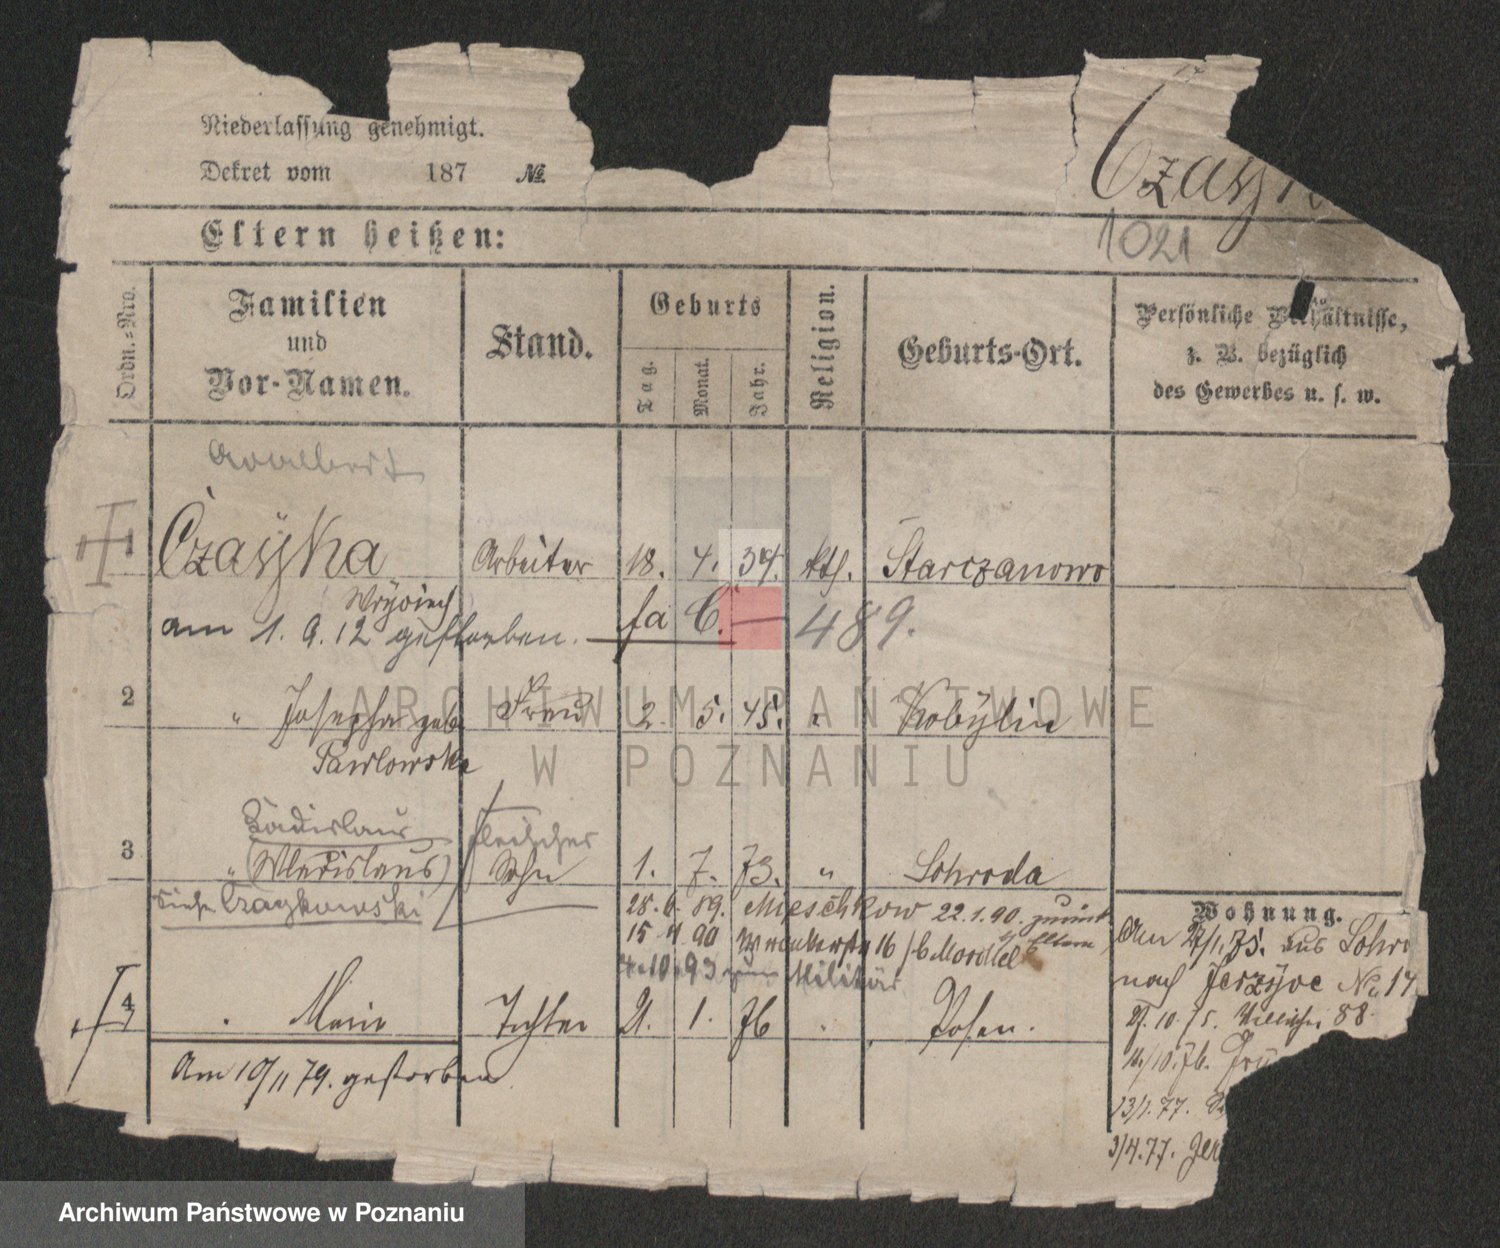 Niederlassung genehmigt.
Dekret vom 187 №
Czayka
1021
Eltern heißen:
Ordn.-Nro.
Familien
und
Vor-Namen.
Stand.
Geburts
Tag.
Monat.
Jahr.
Religion.
Geburts-Ort.
Persönliche Verhältnisse,
z. B. bezüglich
des Gewerbes u. s. w.
Adalbert
1 Czayka Arbeiter 18. 4. 34. kth. Starczanowo
am 1. 9. 12 gestorben. fa C. — 489.
2 " Josepha geb. Frau 2. 5. 45. " Kobylin
Pawlowska
Ladislaus Fleischer
3 " (Wladislaus) Sohn 1. 7. 73. " Schroda
siehe Czaykowski 28. 6. 89. Mieschkow 22.1.90. zurück
Eltern
15 4 90 16
4.10.93 zum Militär
4 " Marie Tochter 21. 1. 76 " Posen.
Am 10/11 79. gestorben
Wohnung.
Am 75. aus Schro
nach Jerzyce No 14
10. 75. 88.
10. 76.
13/1. 77.
3/4.77. Jer
ARCHIWUM PAŃSTWOWE
W POZNANIU
Archiwum Państwowe w Poznaniu